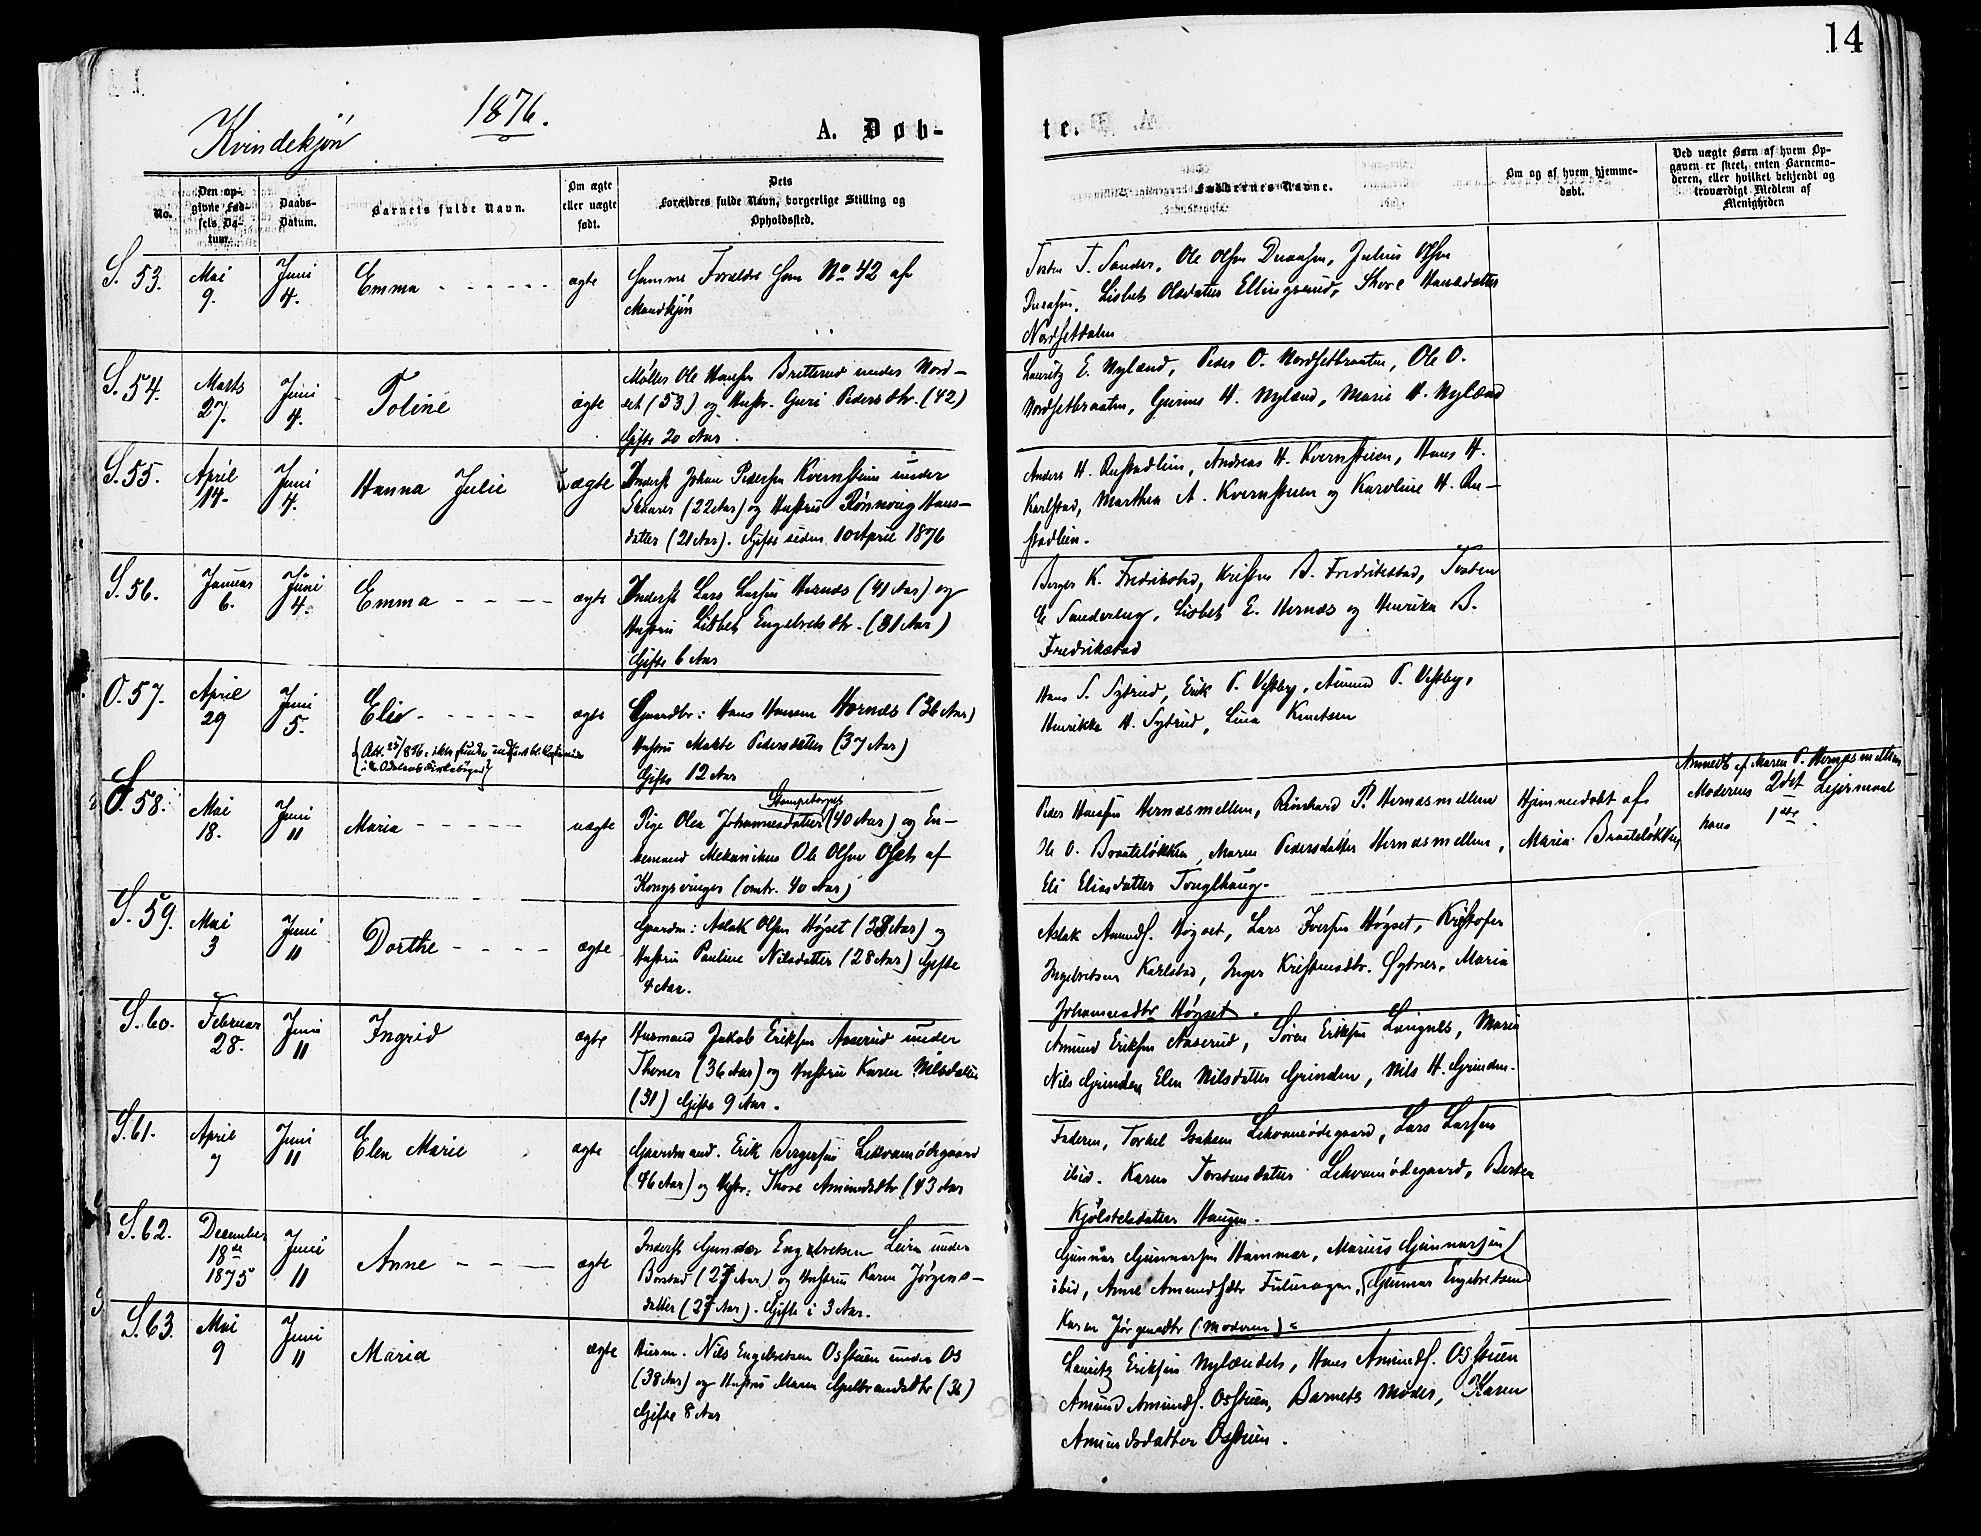 14
1876.
Kvindekjøn
A. Døb-
te.
No.
Den op-
givne Fød-
sels Da-
tum.
Daabs-
Datum.
Barnets fulde Navn.
Om ægte
eller uægte
født.
Dets
Forældres fulde Navn, borgerlige Stilling og
Opholdssted.
Faddernes Navne.
Om og af hvem hjemme-
døbt.
Ved uægte Børn af hvem Op-
gaven er skeet, enten Barnemo-
deren, eller hvilket bekjendt og
troværdigt Medlem af
Menigheden
S. 53.
Mai
9.
Juni
4.
Emma
ægte
Samme Forældre som No 42 af
Mandkjøn
Torsten T. Sander, Ole Olsen, Julius Olsen
Lisbet Olsdatter Ellingsrud, Thore Hansdatter
Nordsetdalen
S. 54.
Marts
27.
Juni
4.
Toline
ægte
Møller Ole Hansen Bretterud under Nord-
set (53) og Hustr. Guri Pedersdtr. (42)
Gifte 20 Aar.
Lauritz E. Nyland, Peder O. Nordsetbraaten, Ole O.
Nordsetbraaten, Gunine H. Nyland, Marie H. Nyland
S. 55.
April
14.
Juni
4.
Hanna Julie
ægte
Inderst Johan Pedersen Kvernstuen under
(22 Aar) og Hustru Rønnoug Hans-
datter (21 Aar). Gifte siden 10 April 1876
Anders H. Rustadlien, Andreas H. Kvernstuen, Hans H.
Karlstad, Marthea A. Kvernstuen og Karoline H. Ru-
stadlien.
S. 56.
Januar
6.
Juni
4.
Emma
ægte
Inderst Lars Larsen Hernæs (41 Aar) og
Hustru Lisbet Engebretsdtr. (31 Aar)
Gifte 6 Aar
Berger K. Fredrikstad, Kristen B. Fredrikstad, Torsten
E. Sanderengen, Lisbet E. Hernæs og Henrika B.
Fredrikstad
O. 57.
April
29
Juni
5.
Elise
ægte
Gaardbr: Hans Hansen Hornæs (36 Aar)
Hustru Malte Pedersdatter (37 Aar)
Gifte 12 Aar
Hans S. Sytrud, Erik P. Vestby, Amund P. Vestby,
Henrikke H. Sytrud, Lina Knutsen
S. 58.
Mai
18.
Juni
11
Maria
uægte
Stampetorpet
Pige Olea Johannesdatter (40 Aar) og En-
kemand Mekanikus Ole Olsen Oset af
Kongsvinger (omtr. 40 Aar)
Peder Hansen Hernæsmellem, Reinhard P. Hernæsmellem
Ole O. Braateløkken, Maren Pedersdatter Hernæsmellem,
Eli Eliasdatter Tonglhaug.
Hjemmedøbt af
Maria Braateløkken
Anmeldt af Maren P. Hernæsmellem
Moderens 2det Lejermaal
hans 1ste.
S. 59.
Mai
3
Juni
11
Dorthe
ægte
Gaardm: Aslak Olsen Høgset (38 Aar) og
Hustru Pauline Nilsdatter (28 Aar) Gifte
4 Aar.
Aslak Amunds. Høgset, Lars Iversen Høgset, Kristofer
Ingebretsen Karlstad, Inger Kristensdtr. Sytner, Maria
Johannesdtr Høgset.
S. 60.
Februar
28.
Juni
11
Ingrid
ægte
Husmand Jakob Eriksen Aaserud under
Thoner (36 Aar) og Hustru Karen Nilsdatter
(31) Gifte 9 Aar.
Amund Eriksen Aaserud, Søren Eriksen Langnes, Maria
Nils Grinden Elen Nilsdatter Grinden, Nils H. Grinden.
S. 61.
April
7
Juni
11
Elen Marie
ægte
Gaardmand. Erik Bergersen Lekvamødegaard
(46 Aar) og Hstr: Thore Amundsdtr (43 Aar
Faderen, Torkel Isaksen Lekvamødegaard, Lars Larsen
ibid. Karen Torstensdatter Lekvamødegaard, Berthe
Kjølstelsdatter Haugen.
S. 62.
December
18de
1875
Juni
11
Anne
ægte
Inderst Gunder Engebretsen Leiren under
Borstad (27 Aar) og Hustru Karen Jørgens-
datter (27 Aar). Gifte i 3 Aar.
Gunnar Gunnarsen Hammer, Marius Gunnarsen
ibid, Anne Amundsdtr Fulusagen, (Gunnar Engebretsen
Karen Jørgensdtr (Moderen)
S. 63.
Mai
9
Juni
11
Maria
ægte
Husm. Nils Engebretsen Osstuen under Os
(38 Aar) og Hustru Maren Gulbrandsdtr (36)
Gifte 8 Aar
Lauritz Eriksen Nylændet, Hans Amunds. Osstuen
Amund Amunds. Osstuen, Barnets Moder, Karen
Amundsdatter Osstuen.